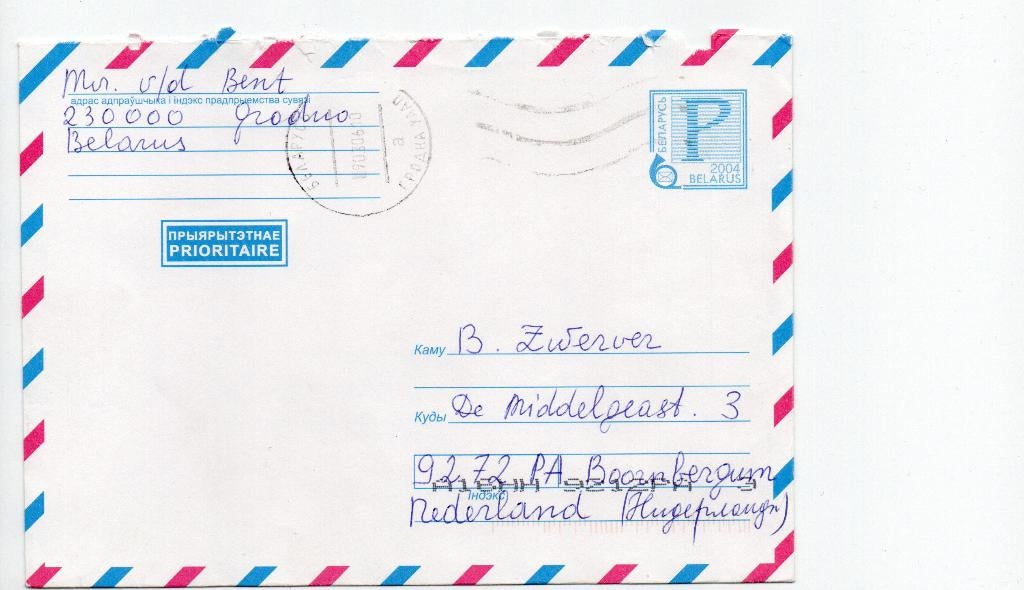 Mr. v/d Bent
адрас адпраўшчыка і індэкс прадпрыемства сувязі
230000 Grodno
Belarus
БЕЛАРУСЬ
P
2004
BELARUS
БЕЛАРУСЬ
ГРОДНА
а
ПРЫЯРЫТЭТНАЕ
PRIORITAIRE
Каму B. Zwerver
Куды De Middelgeast. 3
9272 PA Boornbergum
Індэкс
Nederland (Нидерланды)